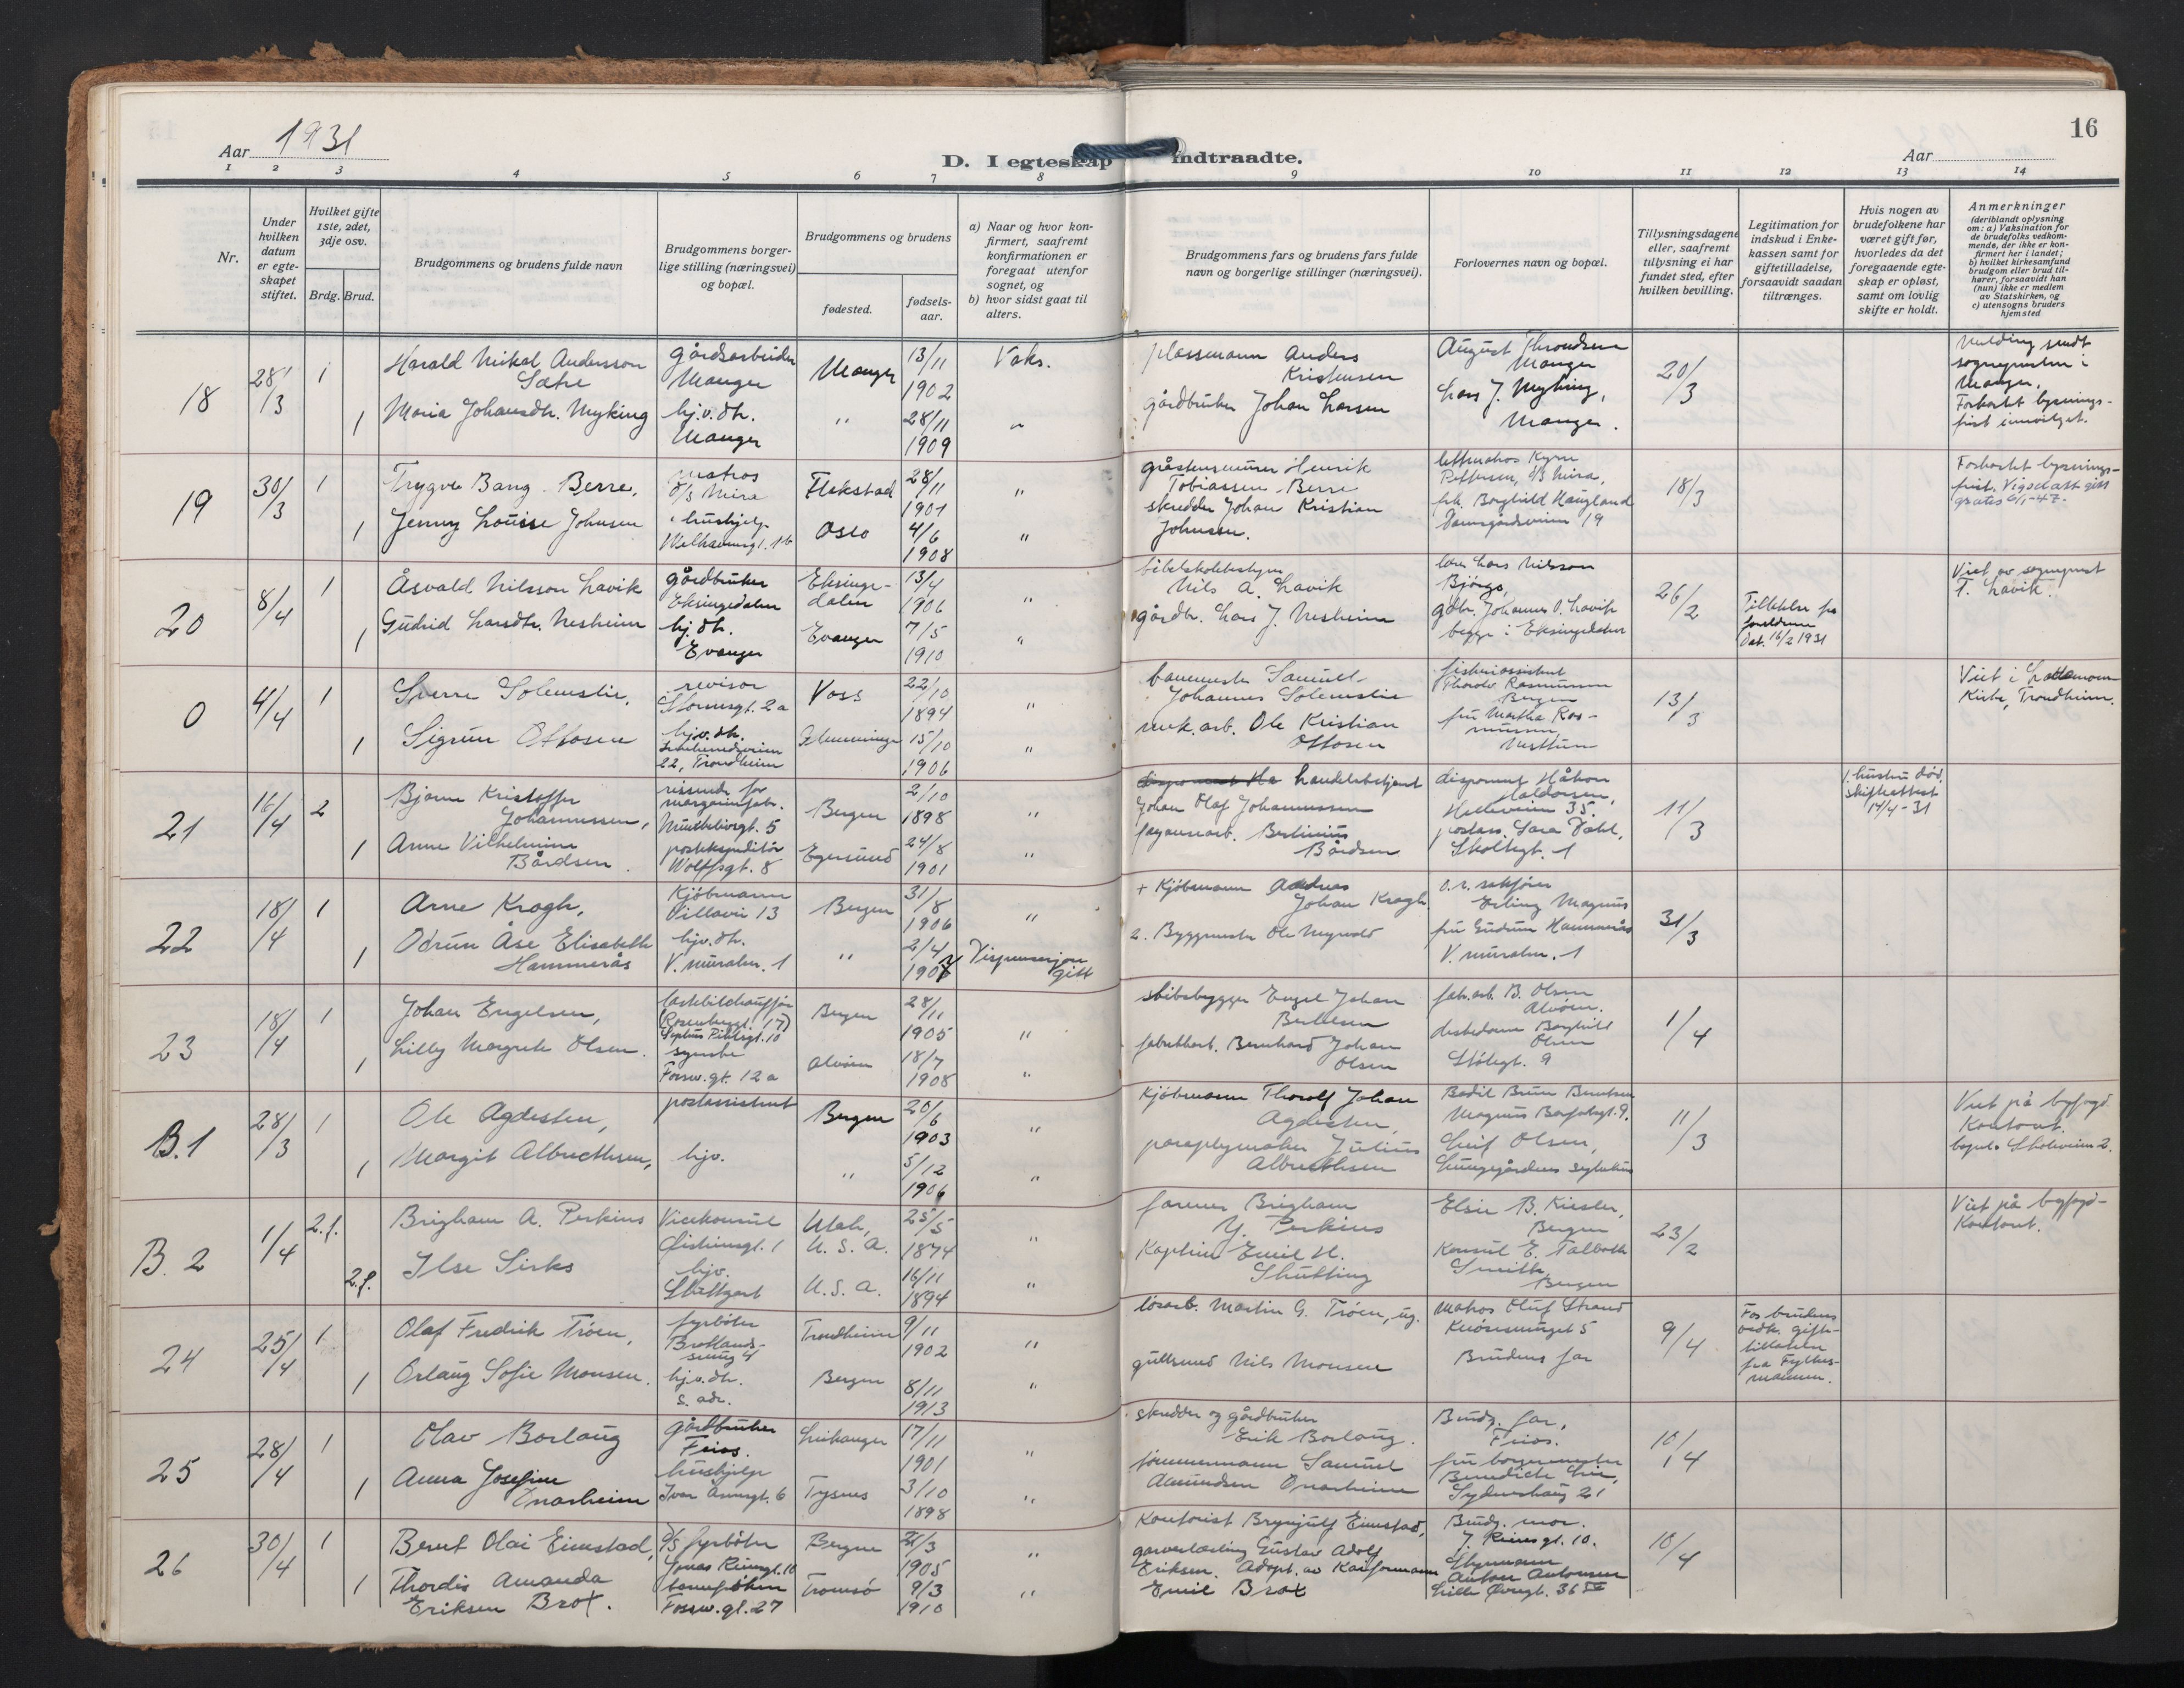 16
Aar 1931
D. I egteskap indtraadte.
Aar
1 2 3 4 5 6 7 8 9 10 11 12 13 14
Nr.
Under hvilken datum er egteskapet stiftet.
Hvilket gifte 1ste, 2det, 3dje osv.
Brdg. Brud.
Brudgommens og brudens fulde navn
Brudgommens borgerlige stilling (næringsvei) og bopæl.
Brudgommens og brudens
fødested.
fødselsaar.
a) Naar og hvor konfirmert, saafremt konfirmationen er foregaat utenfor sognet, og
b) hvor sidst gaat til alters.
Brudgommens fars og brudens fars fulde navn og borgerlige stillinger (næringsvei).
Forlovernes navn og bopæl.
Tillysningsdagene eller, saafremt tillysning ei har fundet sted, efter hvilken bevilling.
Legitimation for indskud i Enkekassen samt for giftetilladelse, forsaavidt saadan tiltrænges.
Hvis nogen av brudefolkene har været gift før, hvorledes da det foregaaende egteskap er opløst, samt om lovlig skifte er holdt.
Anmerkninger
(deriblandt oplysning om: a) Vaksination for de brudefolks vedkommende, der ikke er konfirmert her i landet; b) hvilket kirkesamfund brudgom eller brud tilhører, forsaavidt han (hun) ikke er medlem av Statskirken, og c) utensogns bruders hjemsted
18 28/3 1 Harald Mikal Andersson Sætre gårdsarbeider Manger Manger 13/11 1902 Vaks. plassmann Anders Kristensen August Throndsen Manger 20/3 Melding sendt sognepresten i Manger. Forkortet lysningsfrist innvilget.
1 Maria Johansdtr. Myking hj.v.dtr. Manger " 28/11 1909 " gårdbruker Johan Larsen Lars J. Myking, Manger.
19 30/3 1 Trygve Bang Berre, matros D/S Mira Flekstad 28/11 1901 " Henrik Tobiassen Berre lettmatros Pettersen, D/S Mira, 18/3 Forkortet lysningsfrist. Vigselatt. gitt gratis 6/1-47.
1 Jenny Louise Johnsen hushjelp Oslo 4/6 1908 " skredder Johan Kristian Johnsen. frk. Borghild Haugland Damsgårdsveien 19
20 8/4 1 Åsvald Nilsson Lavik gårdbruker Eksingedalen Eksingedalen 13/4 1906 " bibelskolebestyrer Nils A. Lavik Lars Nilsson Bjørgo, 26/2 Tillatelse fra foreldrene dat. 16/2 1931 Viet av sogneprest F. Lavik.
1 Gudrid Larsdtr. Nesheim hj. dtr. Evanger Evanger 7/5 1910 " gårdbr. Lars J. Nesheim gdbr. Johannes O. Lavik begge i Eksingedalen
0 4/4 1 Sverre Solemslie, revisor Stormsgt. 2a Voss 22/10 1894 " banemester Samuel Johannes Solemslie Thorolv Rasmussen Bergen 13/3 Viet i Lademoen Kirke, Trondheim.
1 Sigrun Ottosen hjv. dtr. 22, Trondheim 15/10 1906 " mek. arb. Ole Kristian Ottosen fru Martha Rasmussen Nesttun
21 16/4 2 Bjarne Kristoffer Johannessen, reisende for margarinfabr. 5 Bergen 2/10 1898 " handelsbetjent Johan Olaf Johannessen disponent Håkon Haldorsen, Helleveien 35. 11/3 1. hustru død. skifteattest 14/4-31
1 Anne Vilhelmine Bårdsen postekspeditør Wolffsgt. 8 Egersund 24/8 1901 " fayancearb. Berthinius Bårdsen postass. Sara Dahl, Skoltegt. 1
22 18/4 1 Arne Krogh, Kjøbmann Villavei 13 Bergen 31/8 1906 " Kjøbmann Andreas Johan Krogh o.r. sakfører Erling Magnus 31/3
1 Odrun Åse Elisabeth Hammerås hjv. dtr. V. muralm. 1 " 2/4 Dispensasjon gitt 2. Byggmester Ole fru Gudrun Hammerås V. muralm. 1
23 18/4 1 Johan Engelsen, lastebilchauffør (Rosenbergsgt. 17) Bergen 28/11 1905 " skibsbygger Engel Johan Bertelsen fabr.arb. B. Olsen Alvøen. 1/4
1 Lilly Margrete Olsen. syerske Fossw.gt. 12a Alvøen 18/7 1908 " fabrikkarb. Bernhard Johan Olsen Borghild Olsen Stølegt. 9
B.1 28/3 1 Ole Agdesten, postassistent Bergen 20/6 1903 " Kjøbmann Thorolf Johan Agdesten, Bodil Brun Berntsen Magnus Barfotsgt. 9. 11/3 Viet på byfogd Kontoret. bopel: Skoleveien 2.
1 Margit Albrechtsen, hjv. " 5/12 1906 " paraplymaker Julius Albrechtsen Leif Olsen, Lungegårdens sykehus
B.2 1/4 2.f. Brigham A. Perkins Vicekonsul Utah, U.S.A. 25/5 1874 " farmer Brigham Y. Perkins Elsie B. Kiesler, Bergen 23/2 Viet på byfogd-Kontoret.
2.f. Ilse Sirks hjv. Stuttgart U.S.A. 16/11 1894 " Kaptein Emil H. Shutting Konsul E. Talbott Smith Bergen
24 25/4 1 Olaf Fredrik Trøen, fyrbøter 4 Trondheim 9/11 1902 " løsarb. Martin G. Trøen, ug. matros Oluf Strand Knøsesmuget 5 9/4 For brudens vedk. giftetillatelse fra Fylkesmannen.
1 Orlaug Sofie Monsen. hjv. dtr. s. adr. Bergen 8/11 1913 " gullsmed Nils Monsen Brudens far
25 28/4 1 Olav Borlaug gårdbruker Frios. Leikanger 17/11 1901 " skredder og gårdbruker Erik Borlaug. Brudg. far, Frios. 10/4
1 Anna Josefine Onarheim hushjelp Ivar Aasensgt. 6 Tysnes 3/10 1898 " tømmermann Samuel Amundsen Onarheim fru borgermester Benedicte Lie, Sydneshaug 21
26 30/4 1 Bernt Olai Eimstad, D/S fyrbøter Jonas Reinsgt. 10 Bergen 21/3 1905 " Kontorist Brynjulf Eimstad, Brudg. mor. J. Reinsgt. 10. 10/4
1 Thordis Amanda Eriksen Brox. Fossw.gt. 27 Tromsø 9/3 1910 " Gustav Adolf Eriksen. Adopt. av Emil Brox Styrmann Anton Antonsen Lille Øvregt. 36